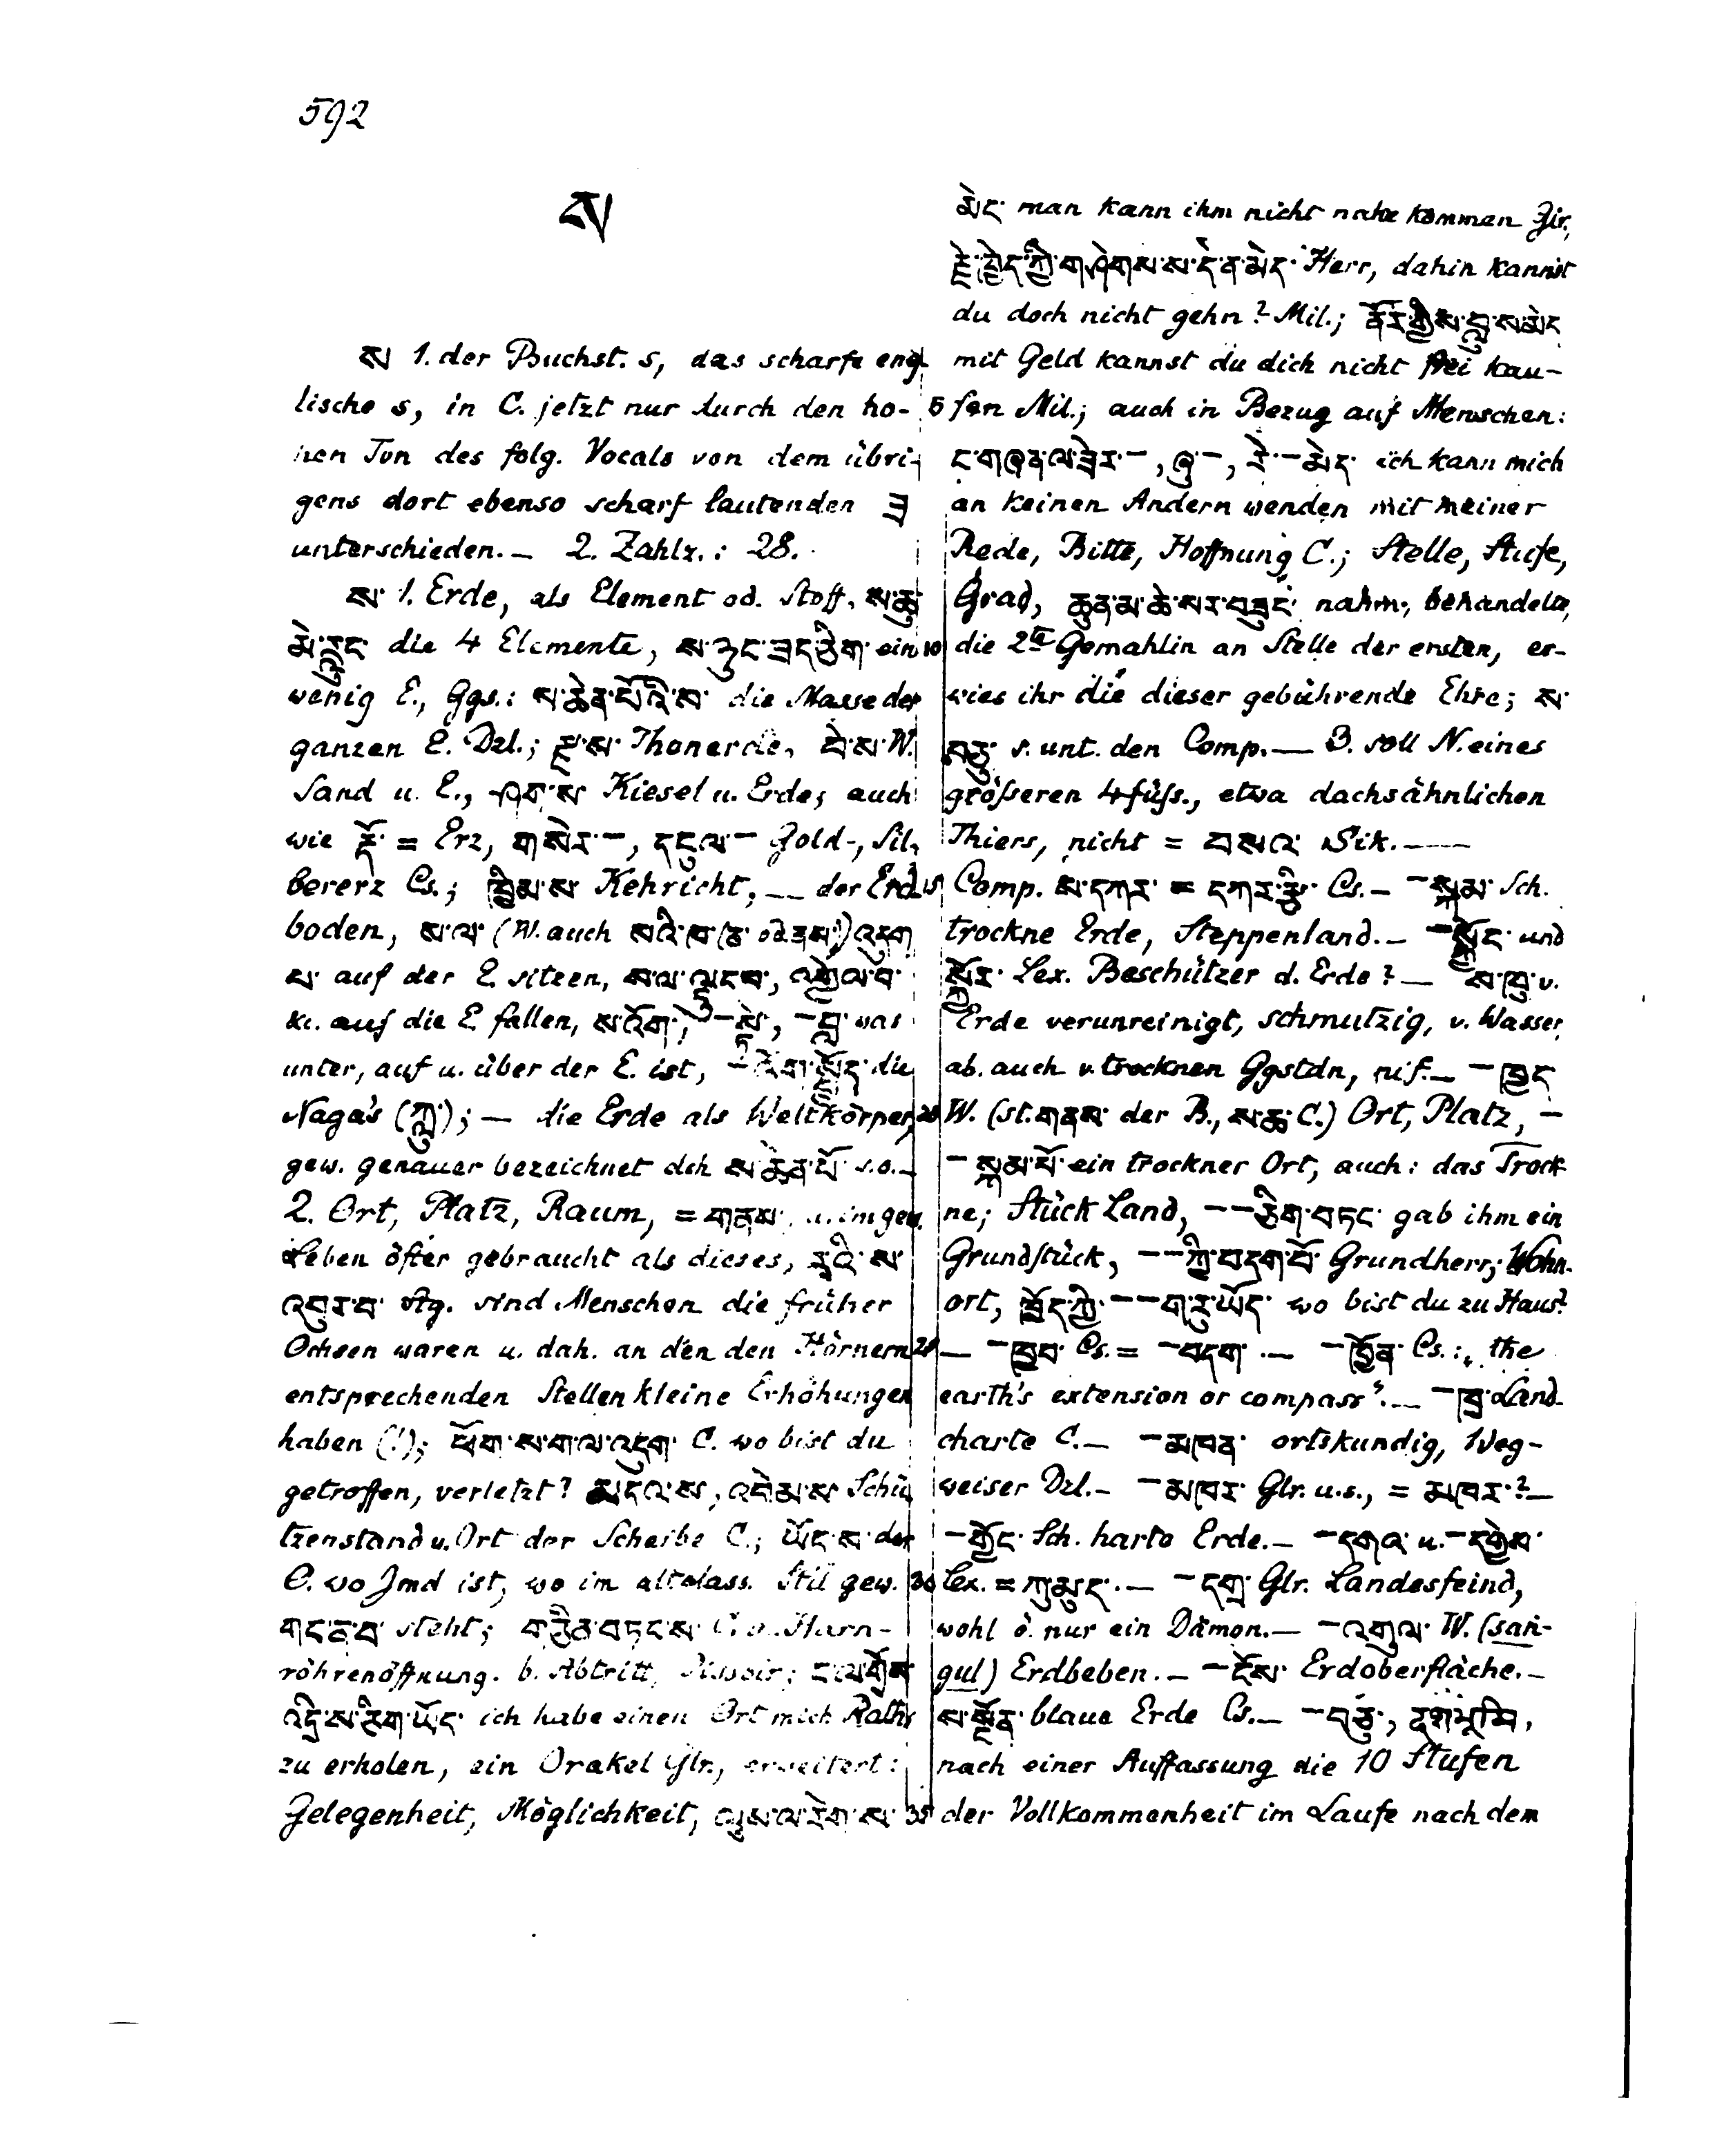 592
ས
ས 1. der Buchst. s, das scharfe eng-
lische s, in C. jetzt nur durch den ho-
hen Ton des folg. Vocals von dem übri-
gens dort ebenso scharf lautenden ཟ
unterschieden. — 2. Zahlz.: 28.
ས་ 1. Erde, als Element od. Stoff, ས་ཆུ་
མེ་རླུང die 4 Elemente, ས་ཉུང་ཟད་ཅིག་ ein
wenig E., Ggs.: ས་ཆེན་པོའི་ས་ die Masse der
ganzen E. Dzl.; རྫ་ས་ Thonerde, བྱེ་ས་ W.
Sand u. E., ཤག་ས་ Kiesel u. Erde; auch
wie རྡོ་ = Erz, གསེར་—, དངུལ་— Gold-, Sil-
bererz Cs.; ས་ Kehricht, — der Erd- 15
boden, ས་ལ་ (W. auch སའི་ཁ་ན་ od. ནས་) འདུག་
པ་ auf der E. sitzen, ས་ལ་ལྟུང་བ་, འགྱེལ་བ་
etc. auf die E. fallen, ས་འོག་, —སྟེ་, —བླ་ was
unter, auf u. über der E. ist, —འོག་སྤྱོད་ die
Nāga's (ཀླུ་); — die Erde als Weltkörper, 20
gew. genauer bezeichnet dch ས་ཆེན་པོ་ s.o. —
2. Ort, Platz, Raum, = གནས་ u. im gew.
Leben öfter gebraucht als dieses, རྭའི་ས་
འབུར་བ་ Stg. sind Menschen die früher
Ochsen waren u. dah. an den den Hörnern 25
entsprechenden Stellen kleine Erhöhungen
haben (!); ཕོག་ས་ག་ལ་འདུག་ C. wo bist du
getroffen, verletzt? མདའ་ས་, འབེམ་ས་ Schü-
tzenstand u. Ort der Scheibe C.; ཡོད་ས་ der
O. wo Jmd ist, wo im altclass. Stil gew. 30
གང་ན་བ་ steht; གཅིན་བཏང་ས་ C. a. Harn-
röhrenöffnung. b. Abtritt, Pissoir; ང་ལ་གྲོས་
འདྲི་ས་ཅིག་ཡོད་ ich habe einen Ort mich Raths
zu erholen, ein Orakel Glr., erweitert:
Gelegenheit, Möglichkeit, ལུས་ལ་རེག་ས་ 35
མེད་ man kann ihm nicht nahe kommen Glr.,
རྗེ་ཁྱེད་ཀྱི་གཤེགས་ས་དེ་ན་མེད་ Herr, dahin kannst
du doch nicht gehn? Mil.; ནོར་གྱིས་བླུ་ས་མེད
mit Geld kannst du dich nicht frei kau-
5 fen Mil.; auch in Bezug auf Menschen:
ང་གཞན་ལ་ཟེར་—, ཞུ་—, རེ་—མེད་ ich kann mich
an keinen Andern wenden mit meiner
Rede, Bitte, Hoffnung C.; Stelle, Stufe,
Grad, ཆུན་མ་ཆེ་སར་བཟུང་ nahm, behandelte,
10 die 2te Gemahlin an Stelle der ersten, er-
wies ihr die dieser gebührende Ehre; ས་
བཅུ་ s. unt. den Comp. — 3. soll N. eines
größeren 4füß., etwa dachsähnlichen
Thiers, nicht = བསའ་ Sik. —
Comp. ས་དཀར་ = དཀར་རྩི་ Cs. — —སྐམ་ Sch.
trockne Erde, Steppenland. — —སྐྱོང་ und
སྐྱོར་ Lex. Beschützer d. Erde? — ས་ཁུ་ v.
Erde verunreinigt, schmutzig, v. Wasser,
ab. auch v. trocknen Ggstdn, nif. — —ཁྱད
W. (st. གནས་ der B., ས་ཆ་ C.) Ort, Platz, —
—སྐམ་པོ་ ein trockner Ort, auch: das Trock-
ne; Stück Land, — —ཅིག་བཏང་ gab ihm ein
Grundstück, — —ཀྱི་བདག་པོ་ Grundherr; Wohn-
ort, ཁྱོད་ཀྱི་— —ག་རུ་ཡོད་ wo bist du zu Haus?
— —ཁྱབ་ Cs. = —བདག་. — —ཁྱོན་ Cs.: the
earth's extension or compass?. — —ཁྲ་ Land-
charte C. — —མཁན་ ortskundig, Weg-
weiser Dzl. — —མཁར་ Glr. u.s., = མཁར་? —
—གྱོང་ Sch. harte Erde. — —དགའ་ u. —དགྱེས་
Lex. = ཀུ་མུད་. — —དགྲ་ Glr. Landesfeind,
wohl ö. nur ein Dämon. — —འགུལ་ W. (sań-
gul) Erdbeben. — —ངོས་ Erdoberfläche. —
ས་སྔོན་ blaue Erde Cs. — —བཅུ་, दशभूमि,
nach einer Auffassung die 10 Stufen
der Vollkommenheit im Laufe nach dem